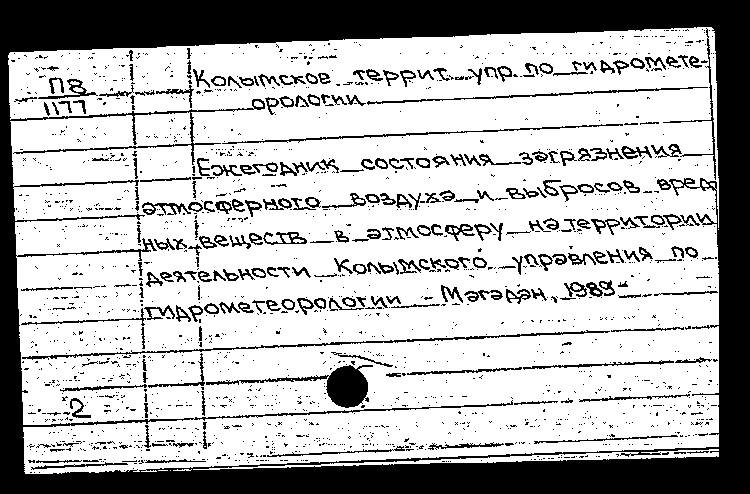 П8
1177
Колымское террит. упр. по гидромете-
орологии
Ежегодник состояния загрязнения
атмосферного воздуха и выбросов вред
ных веществ в атмосферу на территории
деятельности Колымского управления по
гидрометеорологии - Магадан, 1989-
2